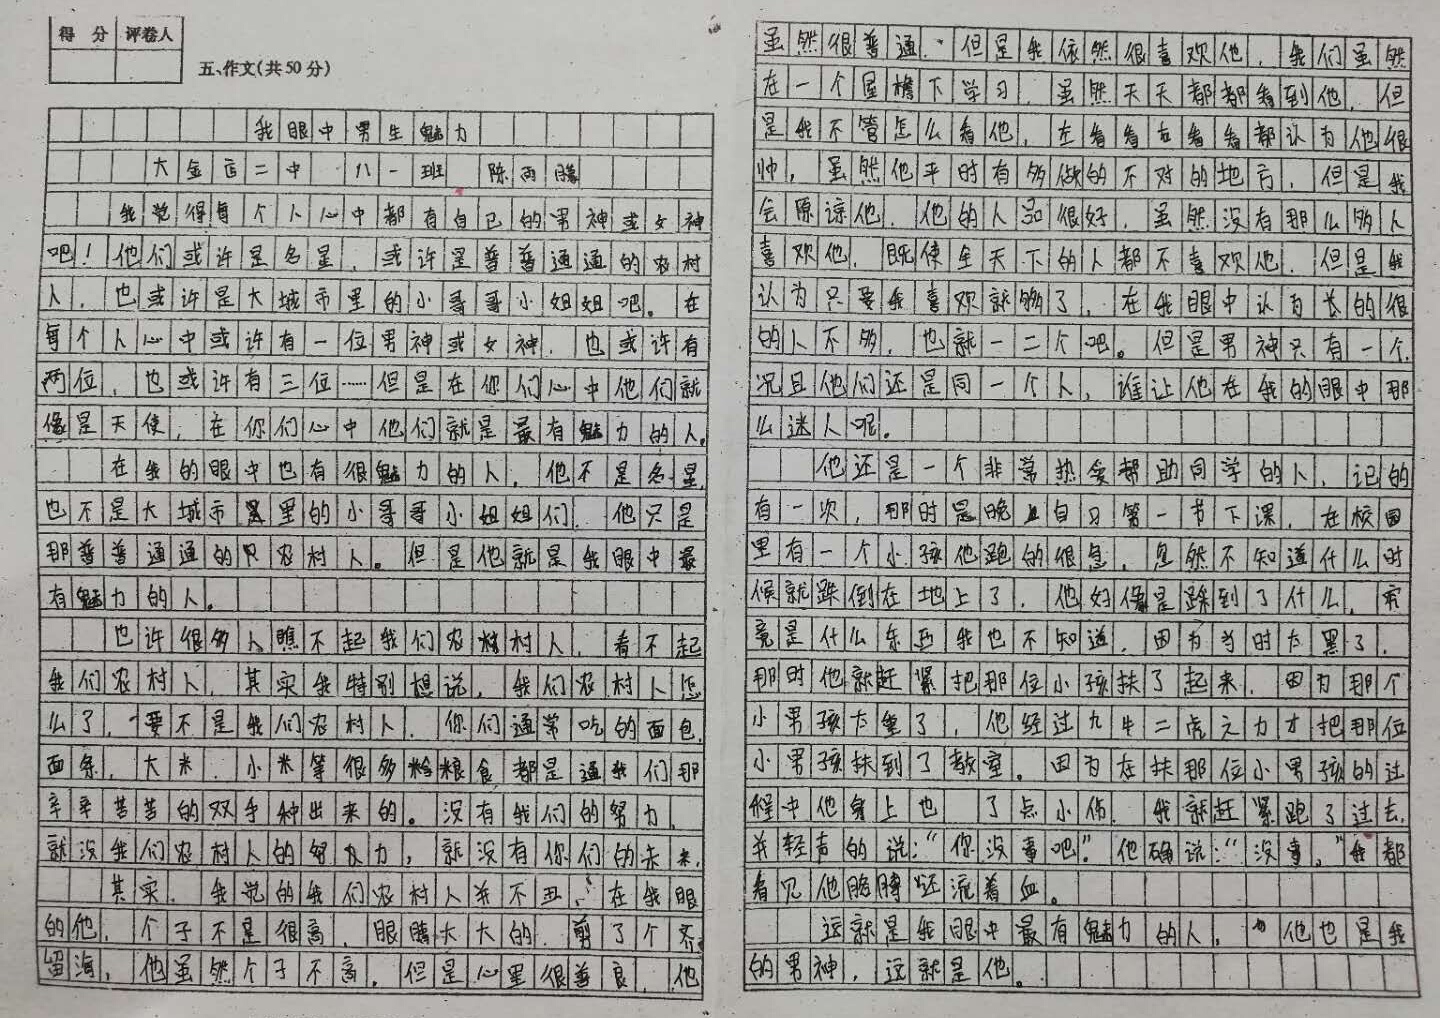 得 分 评卷人
五、作文(共50分)
我眼中男生魅力
大金店二中 八一班 陈雨
我觉得每个人心中都有自已的男神或女神
吧！他们或许是名星，或许是普普通通的农村
人，也或许是大城市里的小哥哥小姐姐吧。在
每个人心中或许有一位男神或女神，也或许有
两位，也或许有三位……但是在你们心中他们就
像是天使，在你们心中他们就是最有魅力的人。
在我的眼中也有很魅力的人，他不是名星，
也不是大城市里的小哥哥小姐姐们，他只是
那普普通通的农村人。但是他就是我眼中最
有魅力的人。
也许很多人瞧不起我们农村人，看不起
我们农村人，其实我特别想说，我们农村人怎
么了，要不是我们农村人，你们通常吃的面包，
面条，大米，小米等很多粮食都是通我们那
辛辛苦苦的双手种出来的。没有我们的努力，
就没我们农村人的努力，就没有你们的未来，
其实，我觉的我们农村人并不丑，在我眼
的他，个子不是很高，眼睛大大的，剪了个齐
留海，他虽然个子不高，但是心里很善良，他
虽然很普通，但是我依然很喜欢他，我们虽然
在一个屋檐下学习，虽然天天都都看到他，但
是我不管怎么看他，左看看右看看都认为他很
帅，虽然他平时有多做的不对的地方，但是我
会原谅他，他的人品很好，虽然没有那么多人
喜欢他，既使全天下的人都不喜欢他，但是我
认为只要我喜欢就够了，在我眼中认为长的很
的人不多，也就一二个吧。但是男神只有一个，
况且他们还是同一个人，谁让他在我的眼中那
么迷人呢。
他还是一个非常热爱帮助同学的人，记的
有一次，那时是晚上自习第一节下课，在校园
里有一个小孩他跑的很急，忽然不知道什么时
候就跺倒在地上了，他好像是跺到了什么，究
竟是什么东西我也不知道，因为当时太黑了，
那时他就赶紧把那位小孩扶了起来，因为那个
小男孩太重了，他经过九牛二虎之力才把那位
小男孩扶到了教室。因为在扶那位小男孩的过
程中他身上也 了点小伤，我就赶紧跑了过去，
并轻声的说：“你没事吧。”他确说：“没事，”我都
看见他胳膊还流着血。
这就是我眼中最有魅力的人， 他也是我
的男神，这就是他。